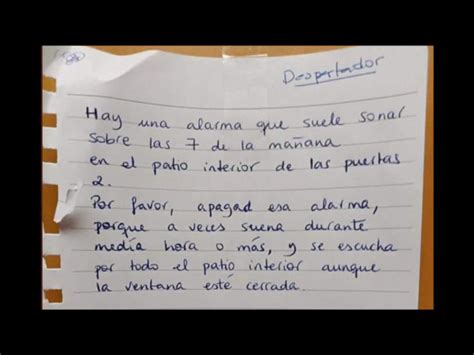 Despertador
Hay una alarma que suele sonar
sobre las 7 de la mañana
en el patio interior de las puertas
2.
Por favor, apagad esa alarma,
porque a veces suena durante
media hora o más, y se escucha
por todo el patio interior aunque
la ventana esté cerrada.